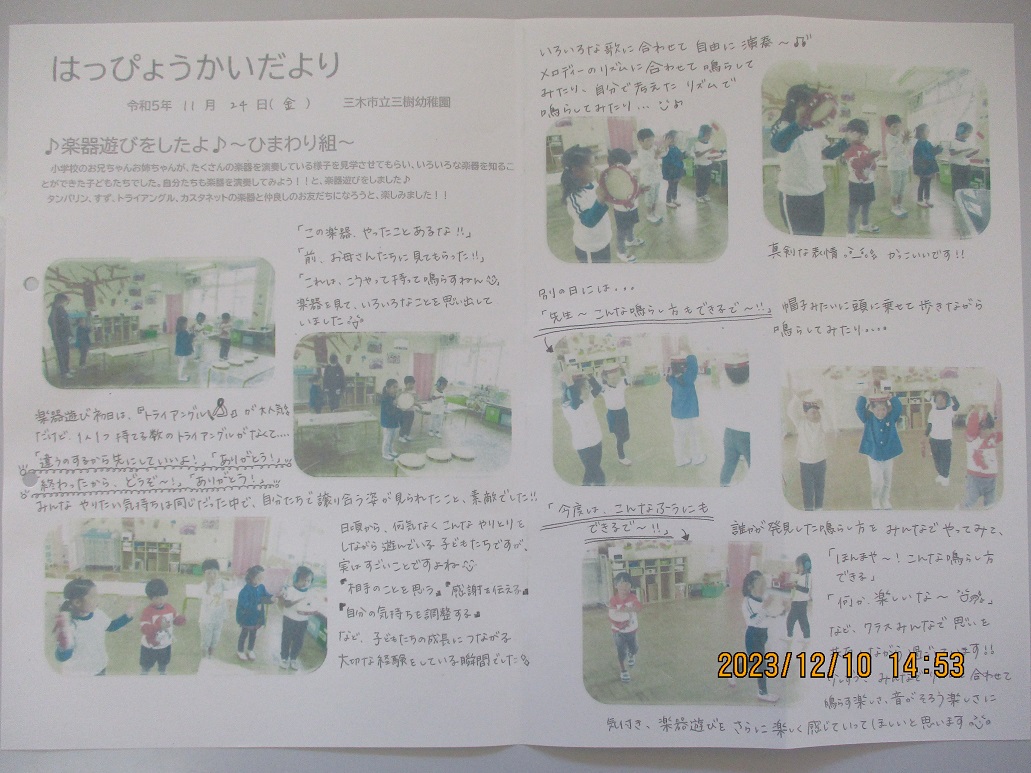 はっぴょうかいだより
令和5年 11月 24日(金) 三木市立三樹幼稚園
♪楽器遊びをしたよ♪～ひまわり組～
小学校のお兄ちゃんお姉ちゃんが、たくさんの楽器を演奏している様子を見学させてもらい、いろいろな楽器を知るこ
とができた子どもたちでした。自分たちも楽器を演奏してみよう！！と、楽器遊びをしました♪
タンバリン、すず、トライアングル、カスタネットの楽器と仲良しのお友だちになろうと、楽しみました！！
「この楽器、やったことあるな!!」
「前、お母さんたちに見てもらった!!」
「これは、こうやって持って鳴らすねん
楽器を見て、いろいろなことを思い出して
いました
楽器遊び初日は、『トライアングル』が大人気
だけど、1人1つ持てる数のトライアングルがなくて....
「違うのするから先にしていいよ！」「ありがとう！」
「終わったから、どうぞ〜！」「ありがとう！」
みんな やりたい気持ちは同じだった中で、自分たちで譲り合う姿が見られたこと、素敵でした!!
日頃から、何気なくこんな やりとりを
しながら 遊んでいる 子どもたちですが、
実はすごいことですよね
『相手のことを思う』『感謝を伝える』
『自分の気持ちを調整する』
など、子どもたちの成長につながる
大切な経験をしている瞬間でした
いろいろな歌に合わせて 自由に 演奏〜♫
メロディーのリズムに合わせて 鳴らして
みたり、自分で考えた リズムで
鳴らしてみたり...
真剣な表情 かっこいいです!!
別の日には...
「先生〜 こんな鳴らし方もできるで〜!!」
帽子みたいに頭に乗せて 歩きながら
鳴らしてみたり....
「今度は、こんなふうにも
できるで〜!!」
誰かが発見した鳴らし方を みんなでやってみて、
「ほんまや〜！こんな鳴らし方
できる」
「何か、楽しいな〜 」
など、クラスみんなで 思いを
しながら
みんなで 合わせて
鳴らす楽しさ、音がそろう楽しさに
気付き、楽器遊びを さらに 楽しく 感じていってほしいと思います
2023/12/10 14:53